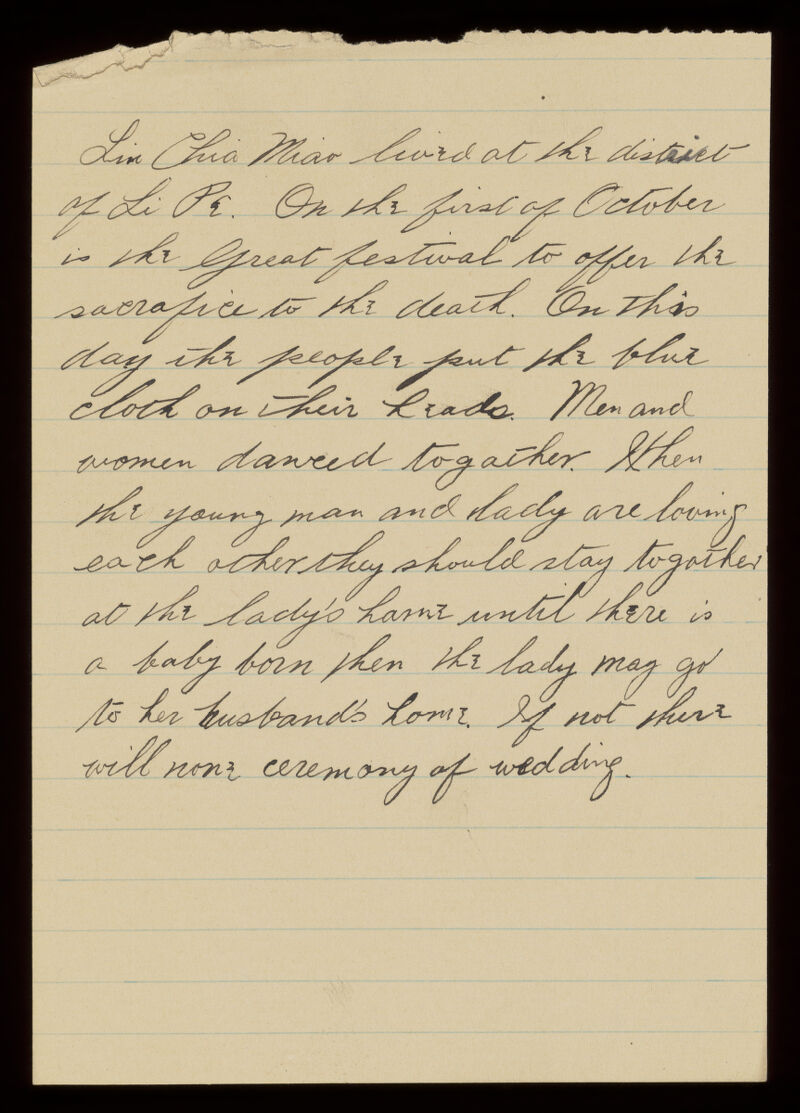 Lin Chia Miao lived at the district
of Li Pe. On the first of October
is the Great festival to offer the
sacrafice to the death. On this
day the people put the blue
cloth on their heads. Men and
women danced togather. When
the young man and lady are loving
each other they should stay togather
at the lady's home until there is
a baby born then the lady may go
to her husband's home. If not there
will none ceremony of wedding.